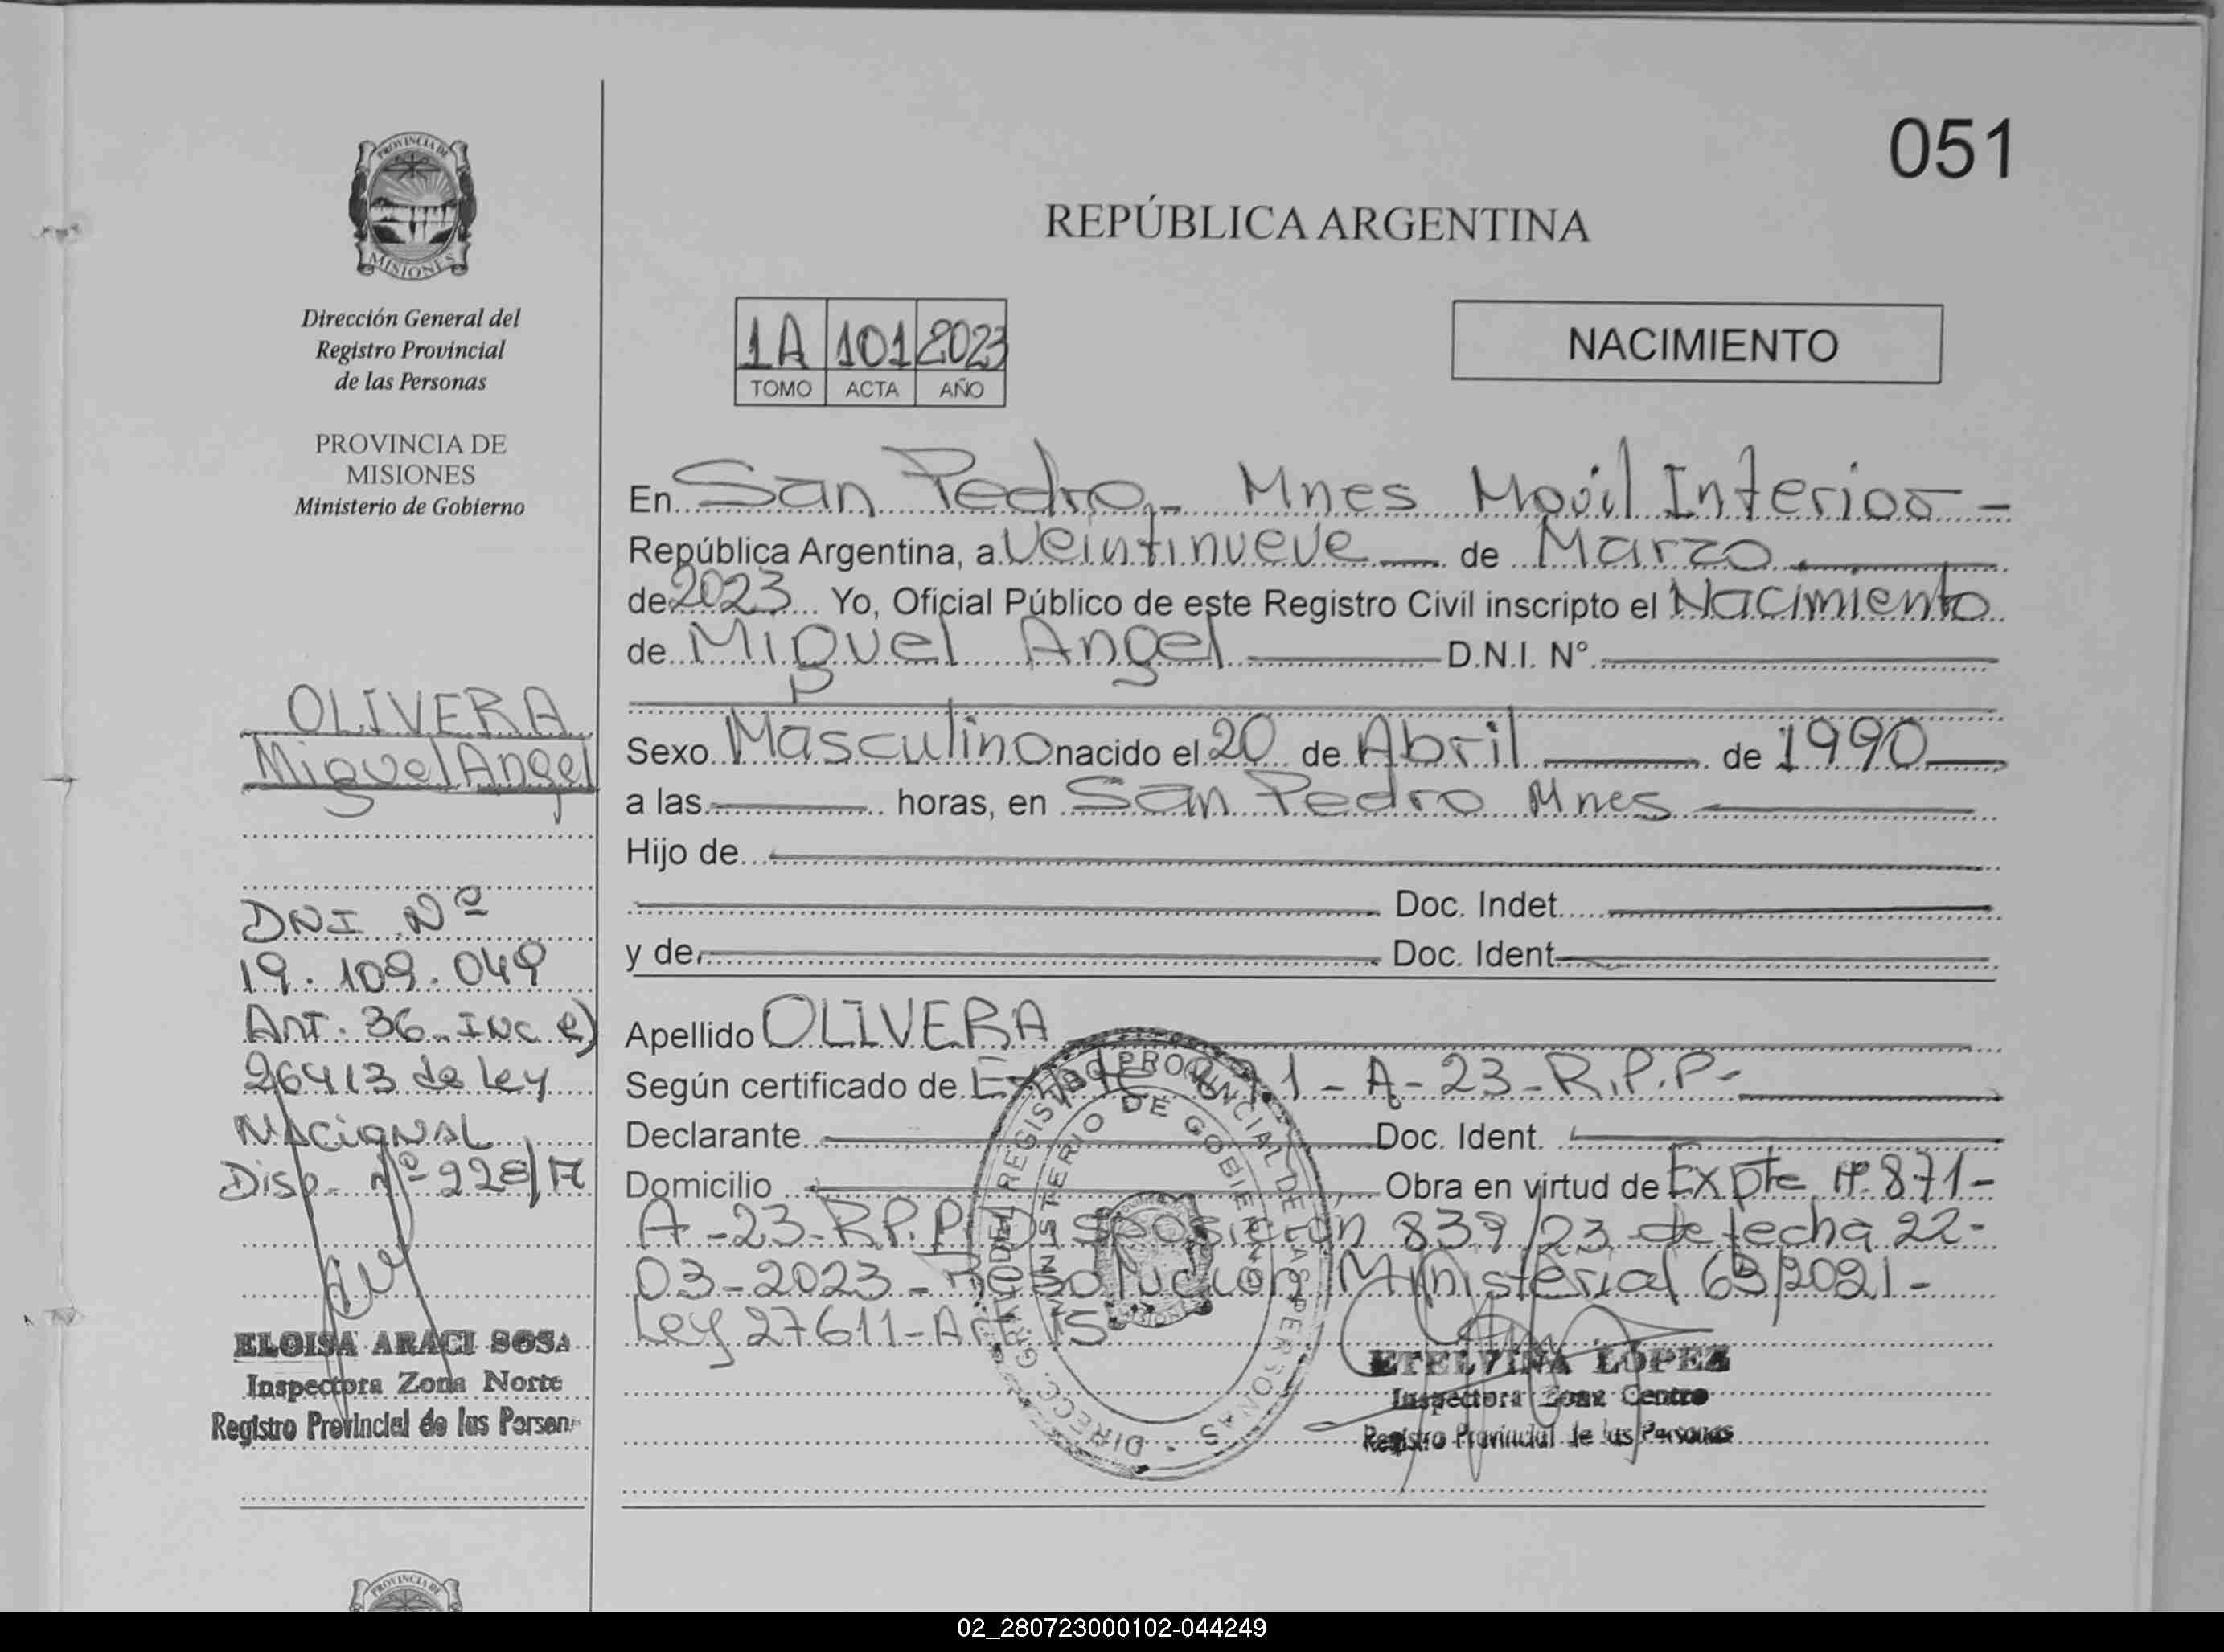 051
PROVINCIA DE
MISIONES
Dirección General del
Registro Provincial
de las Personas
PROVINCIA DE
MISIONES
Ministerio de Gobierno
OLIVERA
Miguel Angel
DNI Nº
19.109.049
Art. 36-Inc e)
26413 de Ley
Nacional
Disp. nº 228/17
ELOISA ARACI SOSA
Inspectora Zona Norte
Registro Provincial de las Person
REPÚBLICA ARGENTINA
1A 101 2023
TOMO ACTA AÑO
NACIMIENTO
En San Pedro - Mnes Movil Interior -
República Argentina, a Veintinueve de Marzo
de 2023 Yo, Oficial Público de este Registro Civil inscripto el Nacimiento
de Miguel Angel D.N.I. Nº
Sexo Masculino nacido el 20 de Abril de 1990
a las horas, en San Pedro Mnes
Hijo de
Doc. Indet.
y de Doc. Ident
Apellido OLIVERA
Según certificado de Expte 871-A-23-R.P.P-
Declarante Doc. Ident.
Domicilio Obra en virtud de Expte Nº 871-
A-23-R.P.P Disposición 839/23 de fecha 22-
03-2023- Resolución Ministerial 63/2021-
Ley 27611-Art 15
DIRECC. GRAL. DEL REGISTRO PROVINCIAL DE LAS PERSONAS
MINISTERIO DE GOBIERNO
MISIONES
ETELVINA LOPEZ
Inspectora Zona Centro
Registro Provincial de las Personas
PROVINCIA DE
02_280723000102-044249